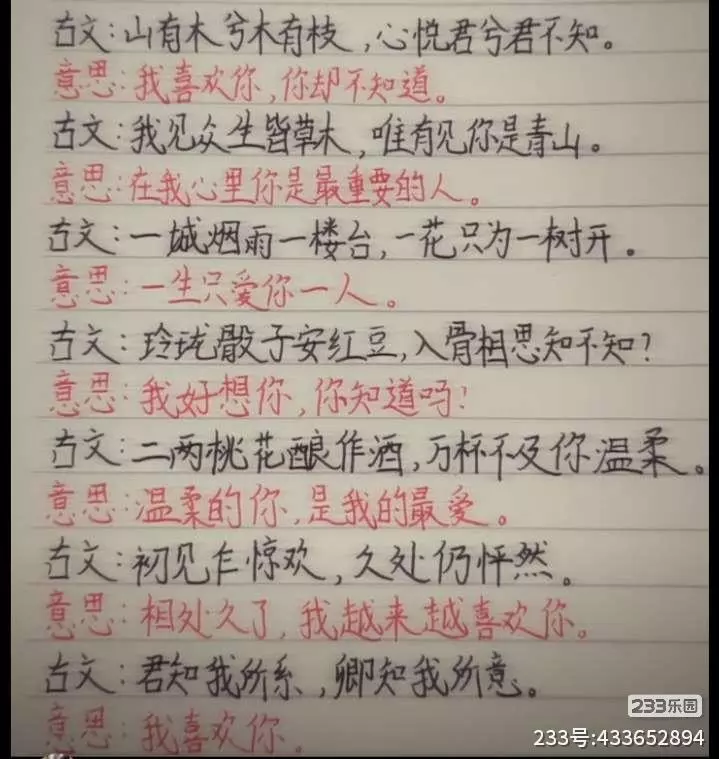 古文:山有木兮木有枝,心悦君兮君不知。
意思:我喜欢你,你却不知道。
古文:我见众生皆草木,唯有见你是青山。
意思:在我心里你是最重要的人。
古文:一城烟雨一楼台,一花只为一树开。
意思:一生只爱你一人。
古文:玲珑骰子安红豆,入骨相思知不知?
意思:我好想你,你知道吗?
古文:二两桃花酿作酒,万杯不及你温柔。
意思:温柔的你,是我的最爱。
古文:初见乍惊欢,久处仍怦然。
意思:相处久了,我越来越喜欢你。
古文:君知我所系,卿知我所意。
意思:我喜欢你.
233乐园
233号:433652894